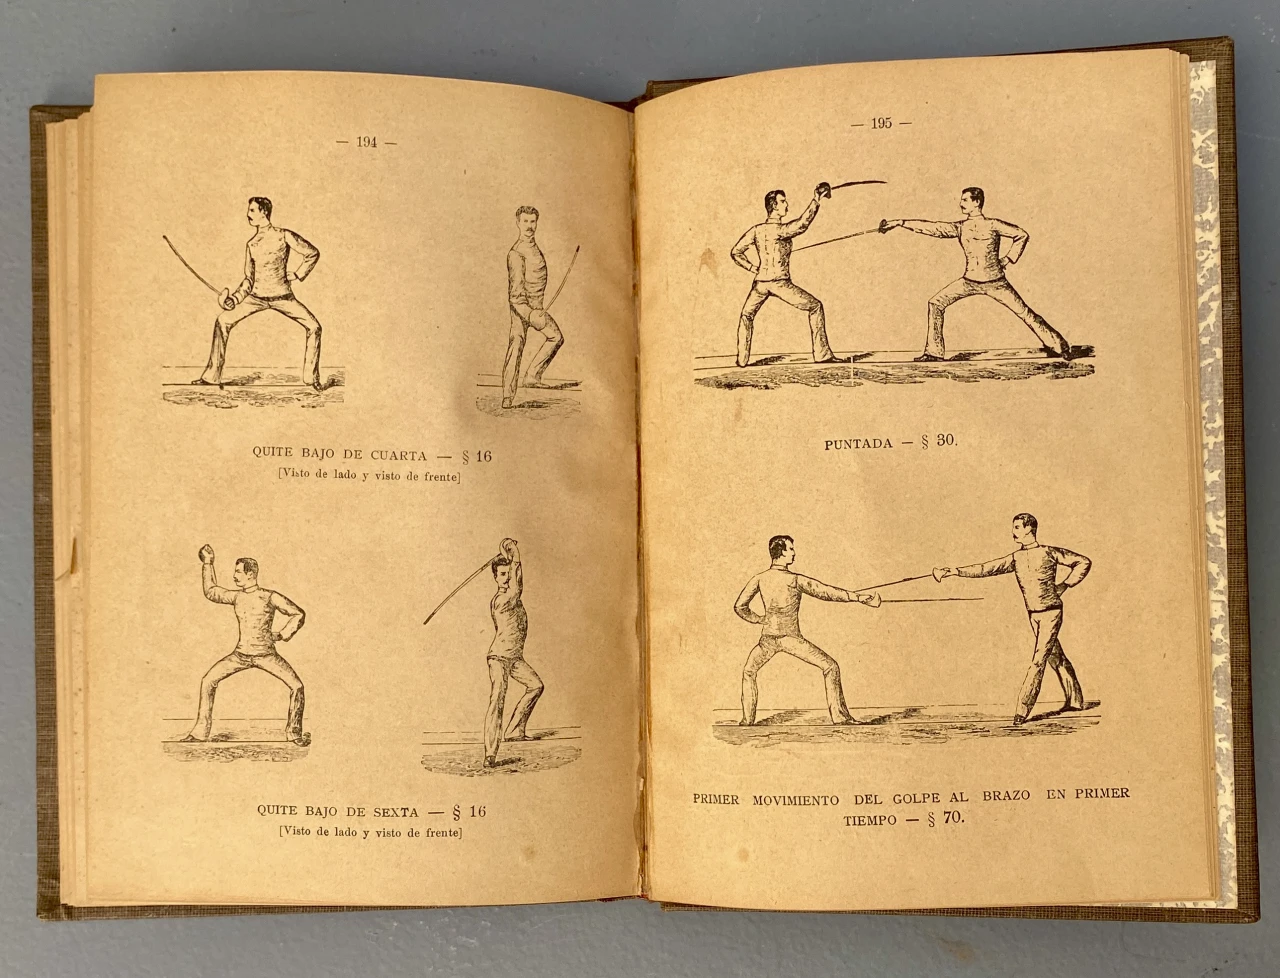 — 194 —
QUITE BAJO DE CUARTA — § 16
[Visto de lado y visto de frente]
QUITE BAJO DE SEXTA — § 16
[Visto de lado y visto de frente]
— 195 —
PUNTADA — § 30.
PRIMER MOVIMIENTO DEL GOLPE AL BRAZO EN PRIMER
TIEMPO — § 70.